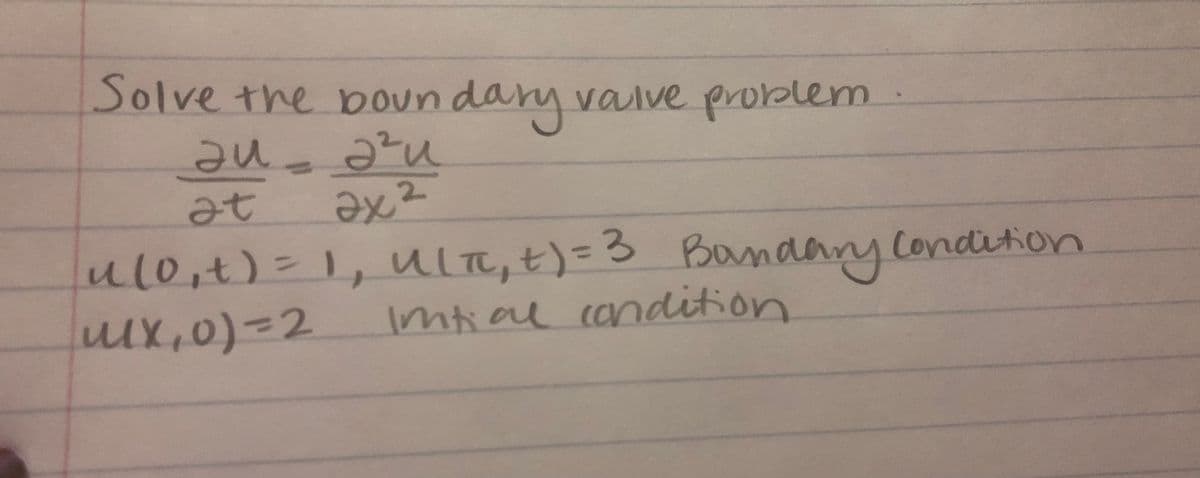 Solve the boundary value problem.
∂u = ∂²u
∂t ∂x²
u(0,t) = 1, u(π,t)=3 Bandary Condition
u(x,0)=2 Imtial condition